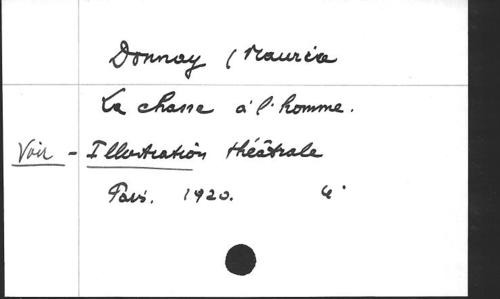 Donnay (Maurice
La chasse à l'homme.
Voir - Illustration théâtrale
Paris. 1920. 4°